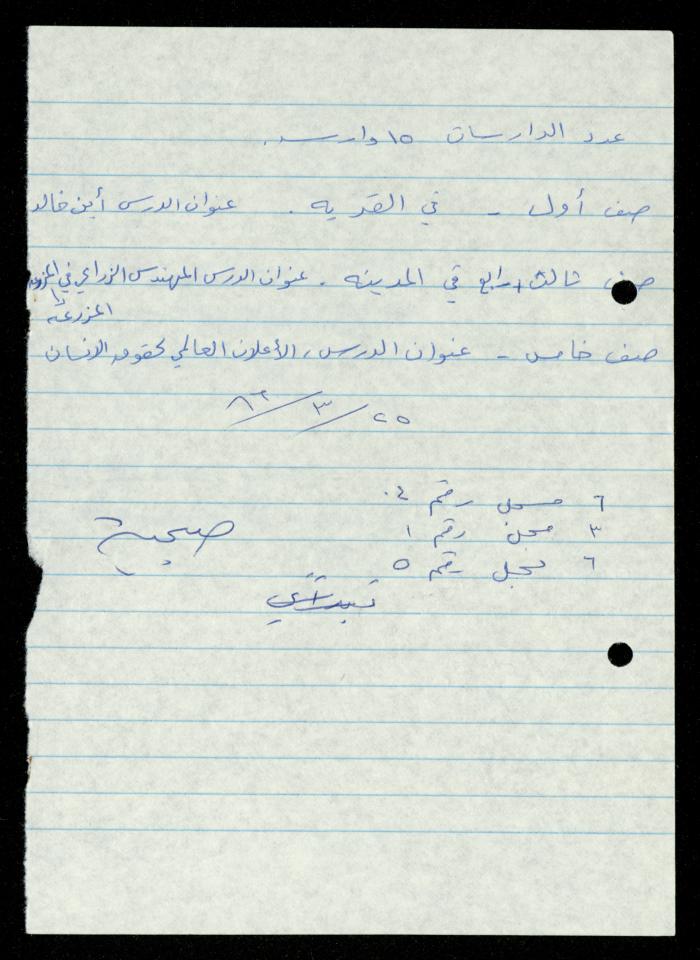 عدد الدارسات ١٥ دارسه.
صف أول - في القريه. عنوان الدرس أين خالد
صف ثالث + رابع في المدينه. عنوان الدرس المهندس الزراعي في المزرعه
المزرعة
صف خامس - عنوان الدرس، الأعلان العالمي لحقوق الانسان
٢٥/٣/٨٦
٦ سجل رقم ٤.
٣ سجل رقم ١
٦ سجل رقم ٥
صبحية